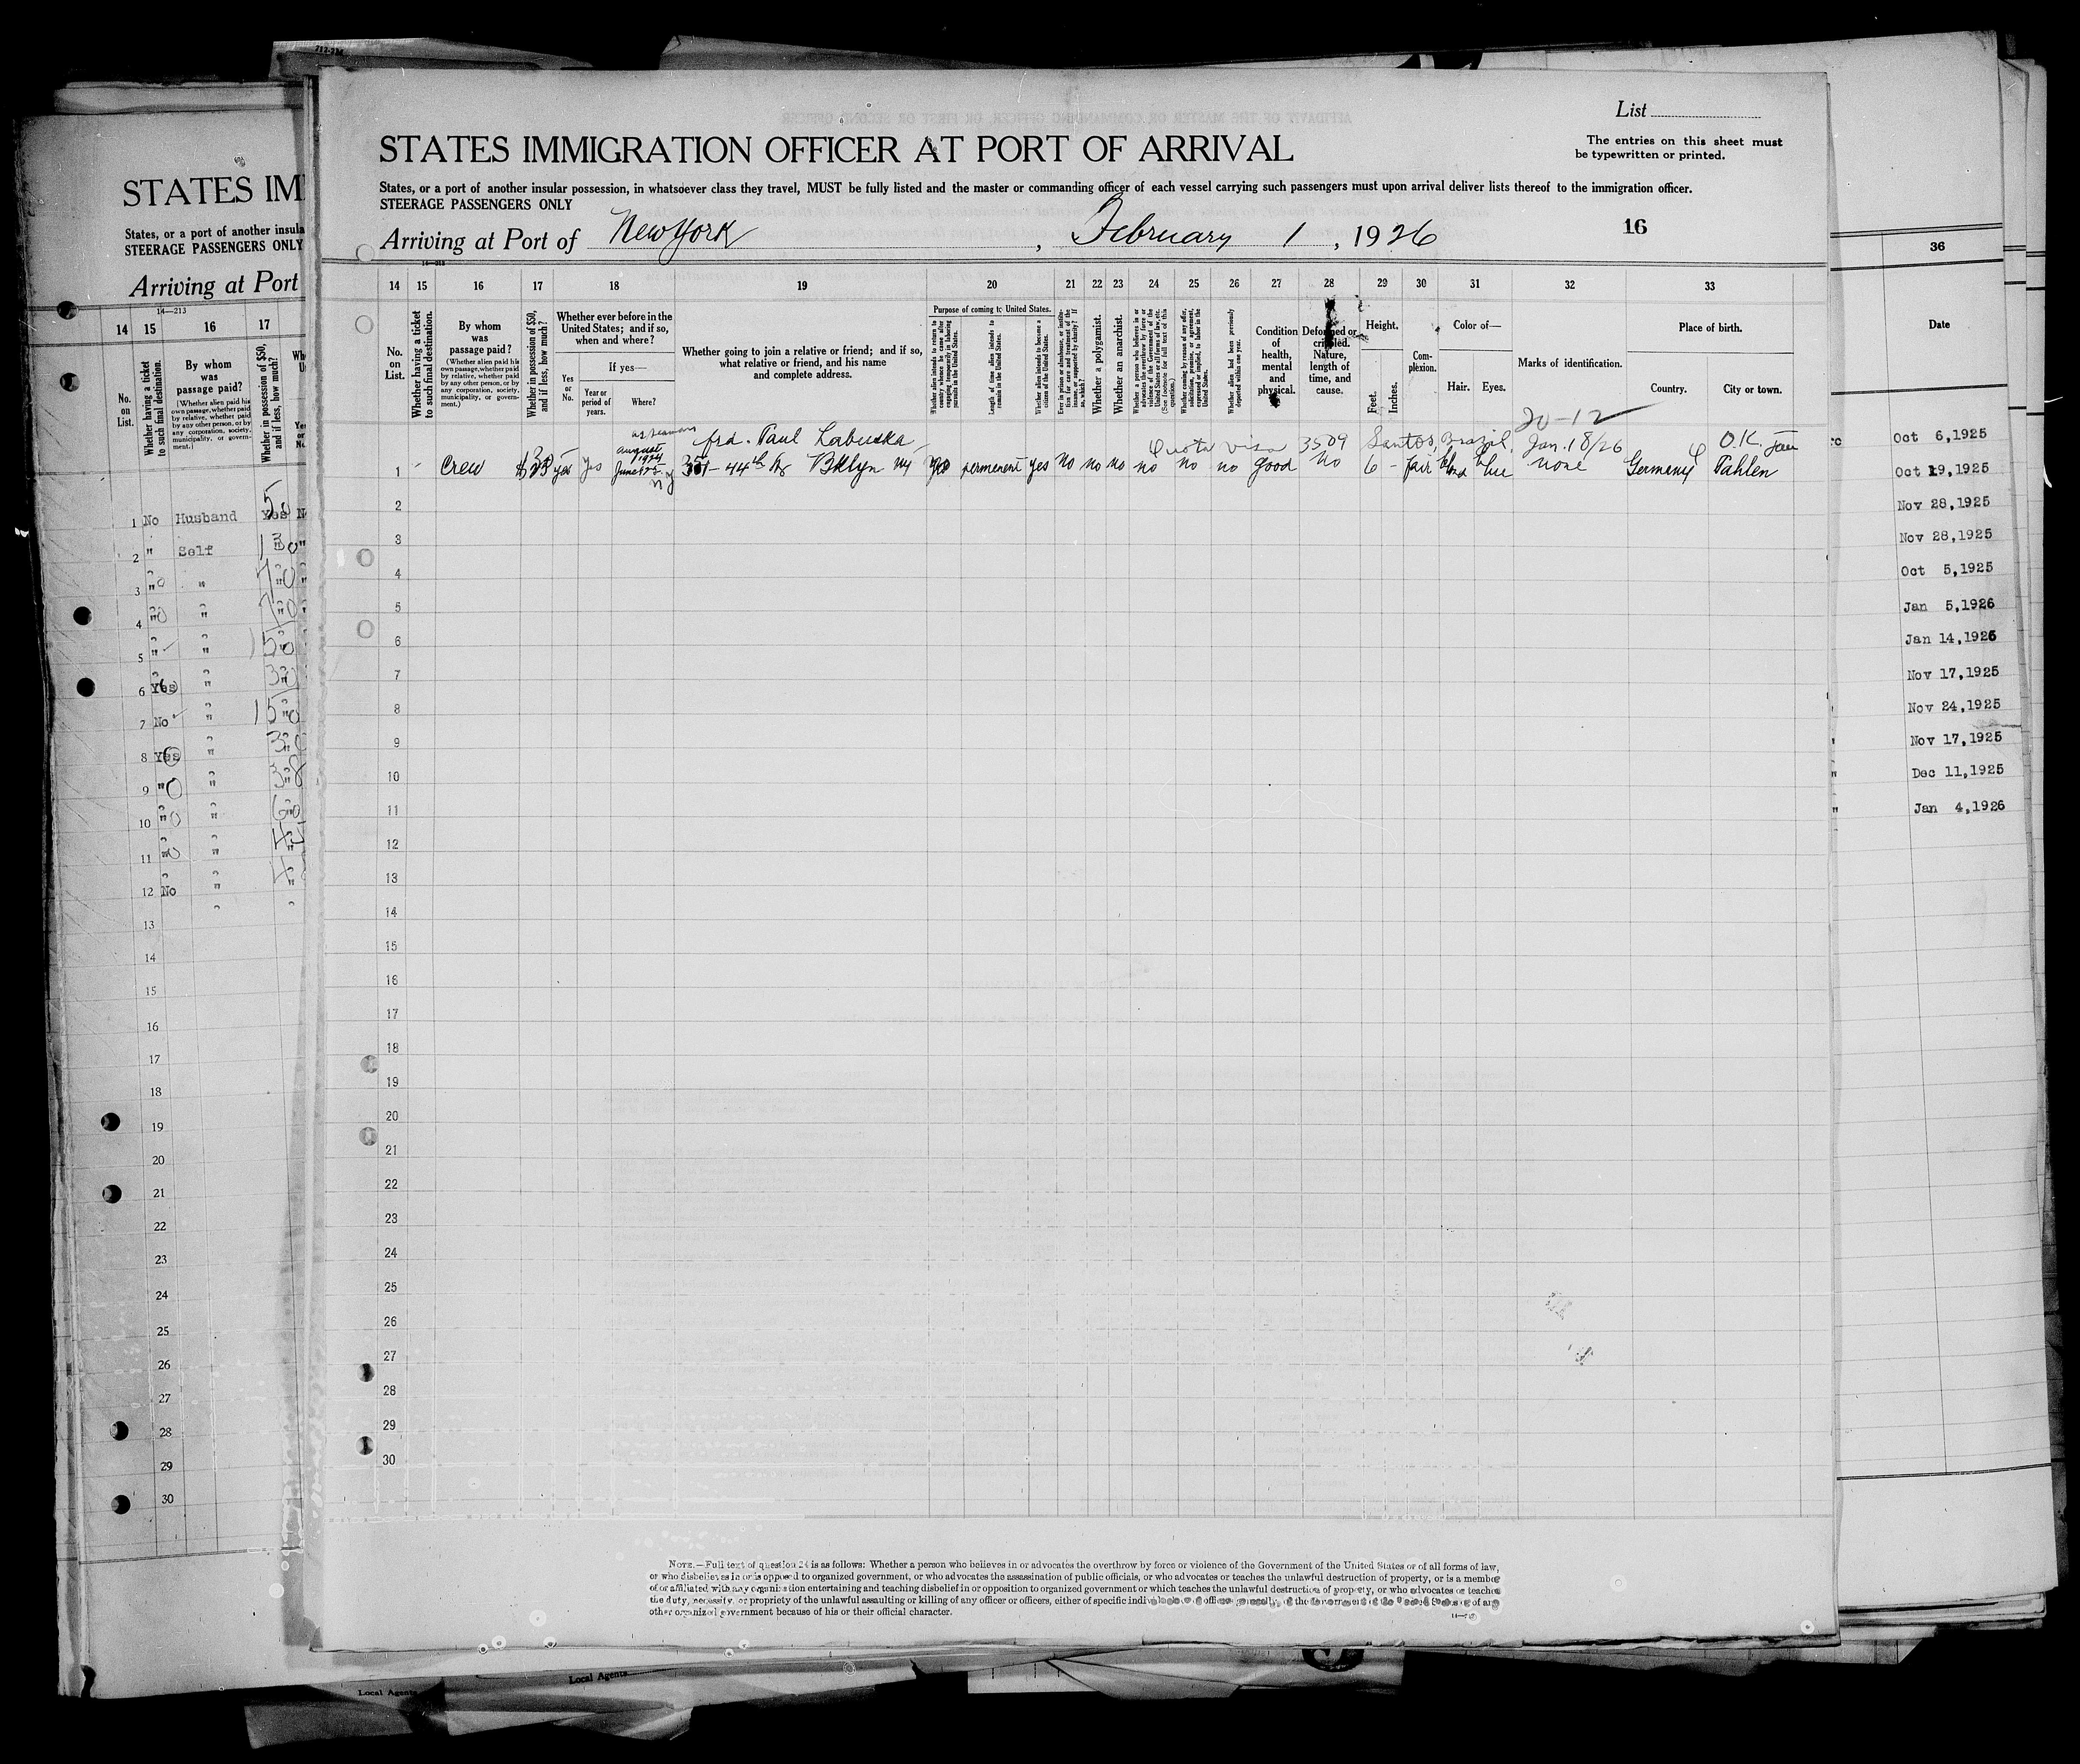 List
The entries on this sheet must
be typewritten or printed.
STATES IMMIGRATION OFFICER AT PORT OF ARRIVAL
States, or a port of another insular possession, in whatsoever class they travel, MUST be fully listed and the master or commanding officer of each vessel carrying such passengers must upon arrival deliver lists thereof to the immigration officer.
STEERAGE PASSENGERS ONLY
Arriving at Port of New York, February 1, 1926
16
14 15 16 17 18 19 20 21 22 23 24 25 26 27 28 29 30 31 32 33
No. on List.
Whether having a ticket to such final destination.
By whom was passage paid?
(Whether alien paid his own passage, whether paid by relative, whether paid by any other person, or by any corporation, society, municipality, or government.)
Whether in possession of $50, and if less, how much?
Whether ever before in the United States; and if so, when and where?
Yes or No.
If yes—
Year or period of years.
Where?
Whether going to join a relative or friend; and if so, what relative or friend, and his name and complete address.
Purpose of coming to United States.
Whether alien intends to return to country whence he came after engaging temporarily in laboring pursuits in the United States.
Length of time alien intends to remain in the United States.
Whether alien intends to become a citizen of the United States.
Whether a polygamist.
Whether an anarchist.
Condition of health, mental and physical.
Deformed or crippled. Nature, length of time, and cause.
Height.
Feet. Inches.
Complexion.
Color of—
Hair. Eyes.
Marks of identification.
Place of birth.
Country. City or town.
20-12
as seaman
frd. Paul Labudka
Quota visa 3509 Santos, Brazil, Jan. 18/26 O.K.
august 1924
1 Crew yes yes 351-44th St Bklyn NY permanent yes no no no no no no good no 6 - fair blond blue none Germany Pahlen
2
3
4
5
6
7
8
9
10
11
12
13
14
15
16
17
18
19
20
21
22
23
24
25
26
27
28
29
30
NOTE.—Full text of question 24 is as follows: Whether a person who believes in or advocates the overthrow by force or violence of the Government of the United States or of all forms of law,
or who disbelieves in or is opposed to organized government, or who advocates the assassination of public officials, or who advocates or teaches the unlawful destruction of property, or is a member
of or affiliated with any organization entertaining and teaching disbelief in or opposition to organized government or which teaches the unlawful destruction of property, or who advocates or teaches
the duty, necessity, or propriety of the unlawful assaulting or killing of any officer or officers, either of specific individuals or of officers generally, of the Government of the United States or of any
other organized government because of his or their official character.
STATES IM
States, or a port of another insula
STEERAGE PASSENGERS ONLY
Arriving at Port
14—213
14 15 16 17
No. on List.
Whether having a ticket to such final destination.
By whom was passage paid?
(Whether alien paid his own passage, whether paid by relative, whether paid by any other person, or by any corporation, society, municipality, or government.)
Whether in possession of $50, and if less, how much?
1 No Husband Yes
2 " Self
3 " "
4 " "
5 " "
6 Yes "
7 No "
8 Yes "
9 " "
10 " "
11 " "
12 No "
13
14
15
16
17
18
19
20
21
22
23
24
25
26
27
28
29
30
36
Date
Oct 6,1925
Oct 19,1925
Nov 28,1925
Nov 28,1925
Oct 5,1925
Jan 5,1926
Jan 14,1926
Nov 17,1925
Nov 24,1925
Nov 17,1925
Dec 11,1925
Jan 4,1926
Local Agents
Local Agents